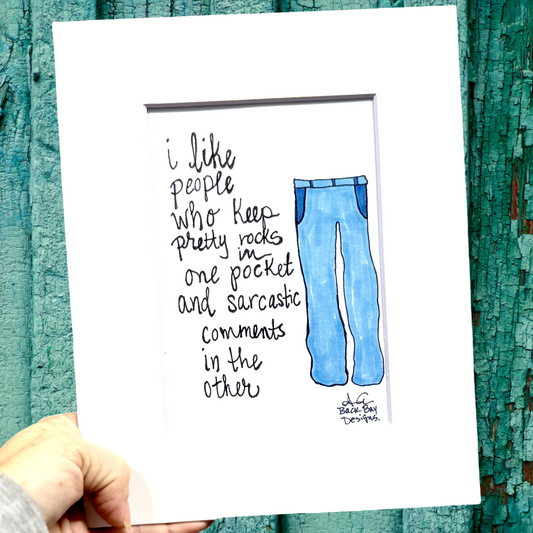 i like
people
who keep
pretty rocks
in
one pocket
and sarcastic
comments
in the
other
AG
Back Bay
Designs.